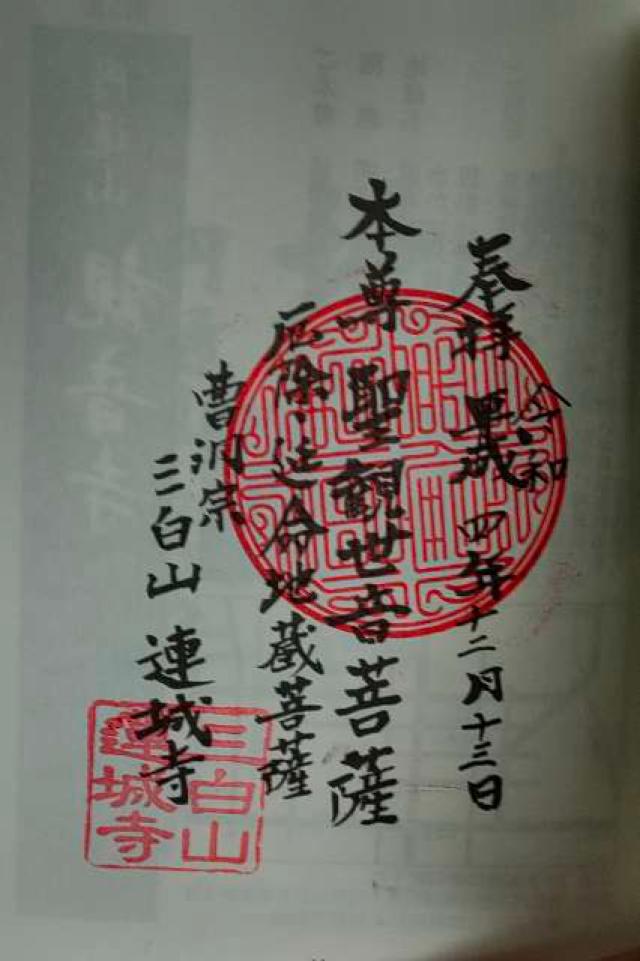 奉拝 平成 令和 四年十二月十三日
本尊 聖観世音菩薩
厄除・延命地蔵菩薩
曹洞宗
三白山 連城寺
三白山
連城寺